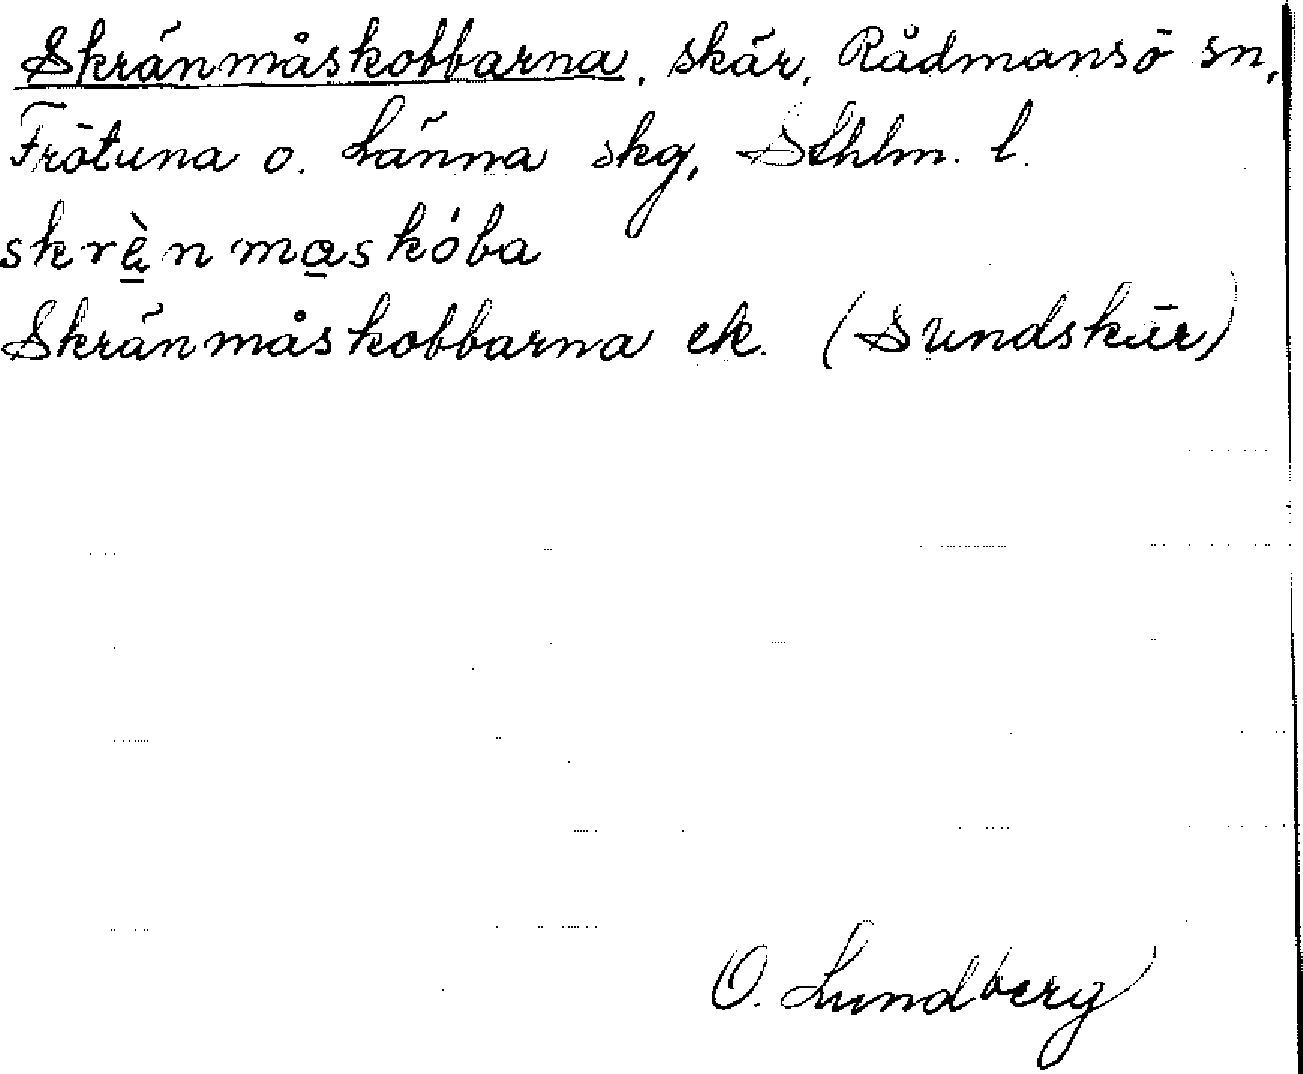 Skränmåskobbarna, skär, Rådmansö sn,
Frötuna o. Länna skg, Sthlm. l.
skrènmaskóba
Skränmåskobbarna ek. (Sundskär)
O. Lundberg